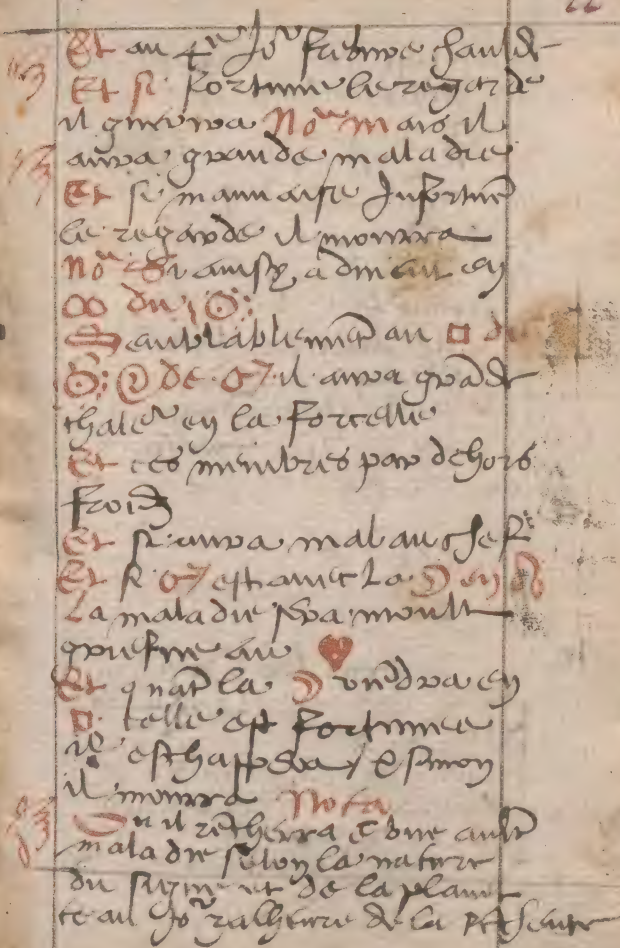 Et au 4e Jor fiebvre chaulde
Et si fortune le regarde
il guerira Noª Mais il
aura grande maladie
Et si mauvaise Infortune
le regarde il mourra
Noª Si ainsy advient en
☍ du ☉
Semblablement au □ du
☉ de ♂ il aura grāde
chaler en la forcelle
Et ces membres par dehors
froidz
Et si aura mal au chef
Et si ♂ est avec La ☽ en ♌
La maladie sera moult
griefve au ♥
Et quāt la ☽ viēdra en
□ telle est fortunee
il eschapera / & sinon
il mourra Nota
Ou il rēcherra ē une aultre
maladie selon la nature
du signe et de la plane
te au Jor & a lheure de la presente